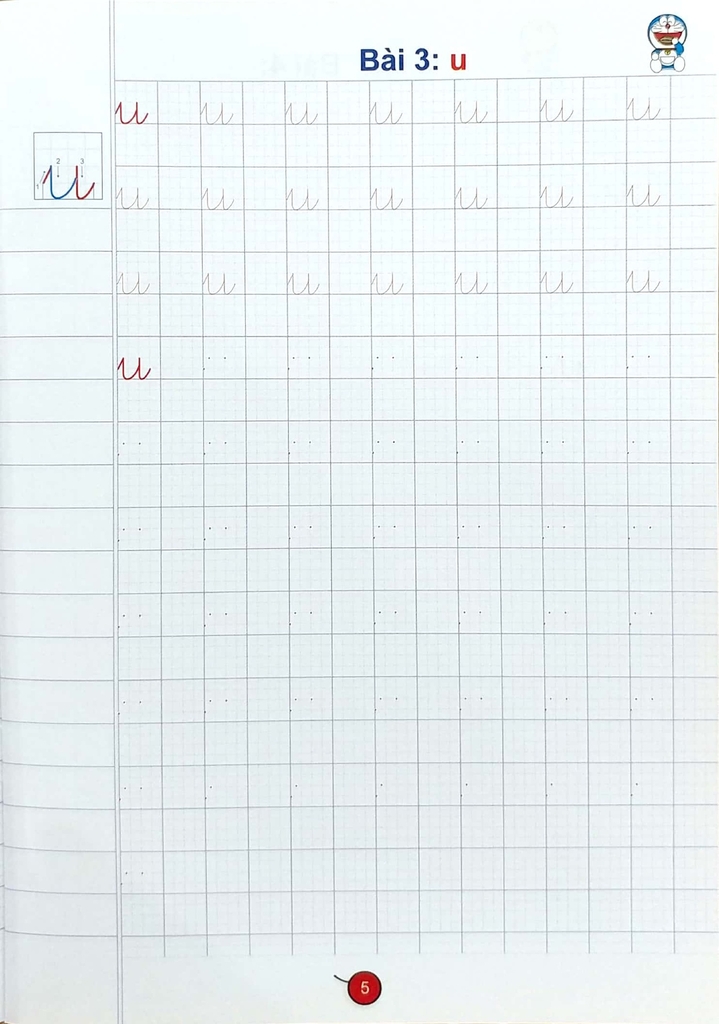 Bài 3: u
u u u u u u u
1 2 3
u
u u u u u u u
u u u u u u u
u
5